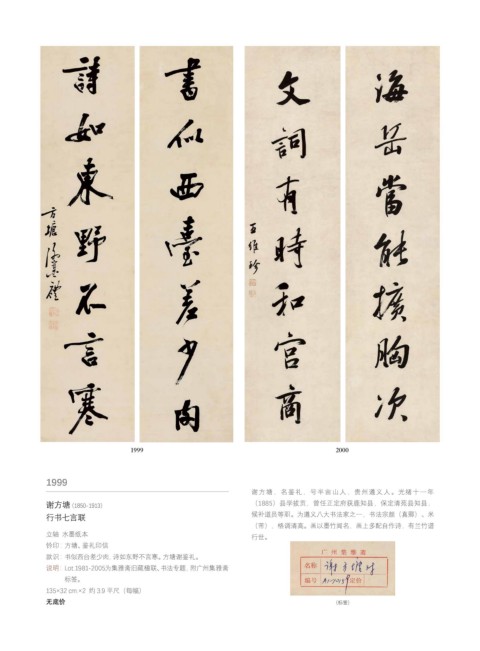 書似西臺差少肉
詩如東野不言寒
方塘謝鑒禮
海岳當能擴胸次
文詞有時和宮商
王維珍
1999
2000
1999
谢方塘 (1850-1913)
行书七言联
立轴 水墨纸本
钤印：方塘、鉴礼印信
款识：书似西台差少肉，诗如东野不言寒。方塘谢鉴礼。
说明：Lot 1981-2005为集雅斋旧藏楹联、书法专题，附广州集雅斋
标签。
135×32 cm.×2 约 3.9 平尺（每幅）
无底价
谢方塘，名鉴礼，号半亩山人，贵州遵义人。光绪十一年
（1885）县学拔贡，曾任正定府获鹿知县，保定清苑县知县，
候补道员等职。为遵义八大书法家之一，书法宗颜（真卿）、米
（芾），格调清高。画以墨竹闻名，画上多配自作诗，有兰竹道
行世。
广州集雅斋
名称 谢方塘对
编号
定价
（标签）